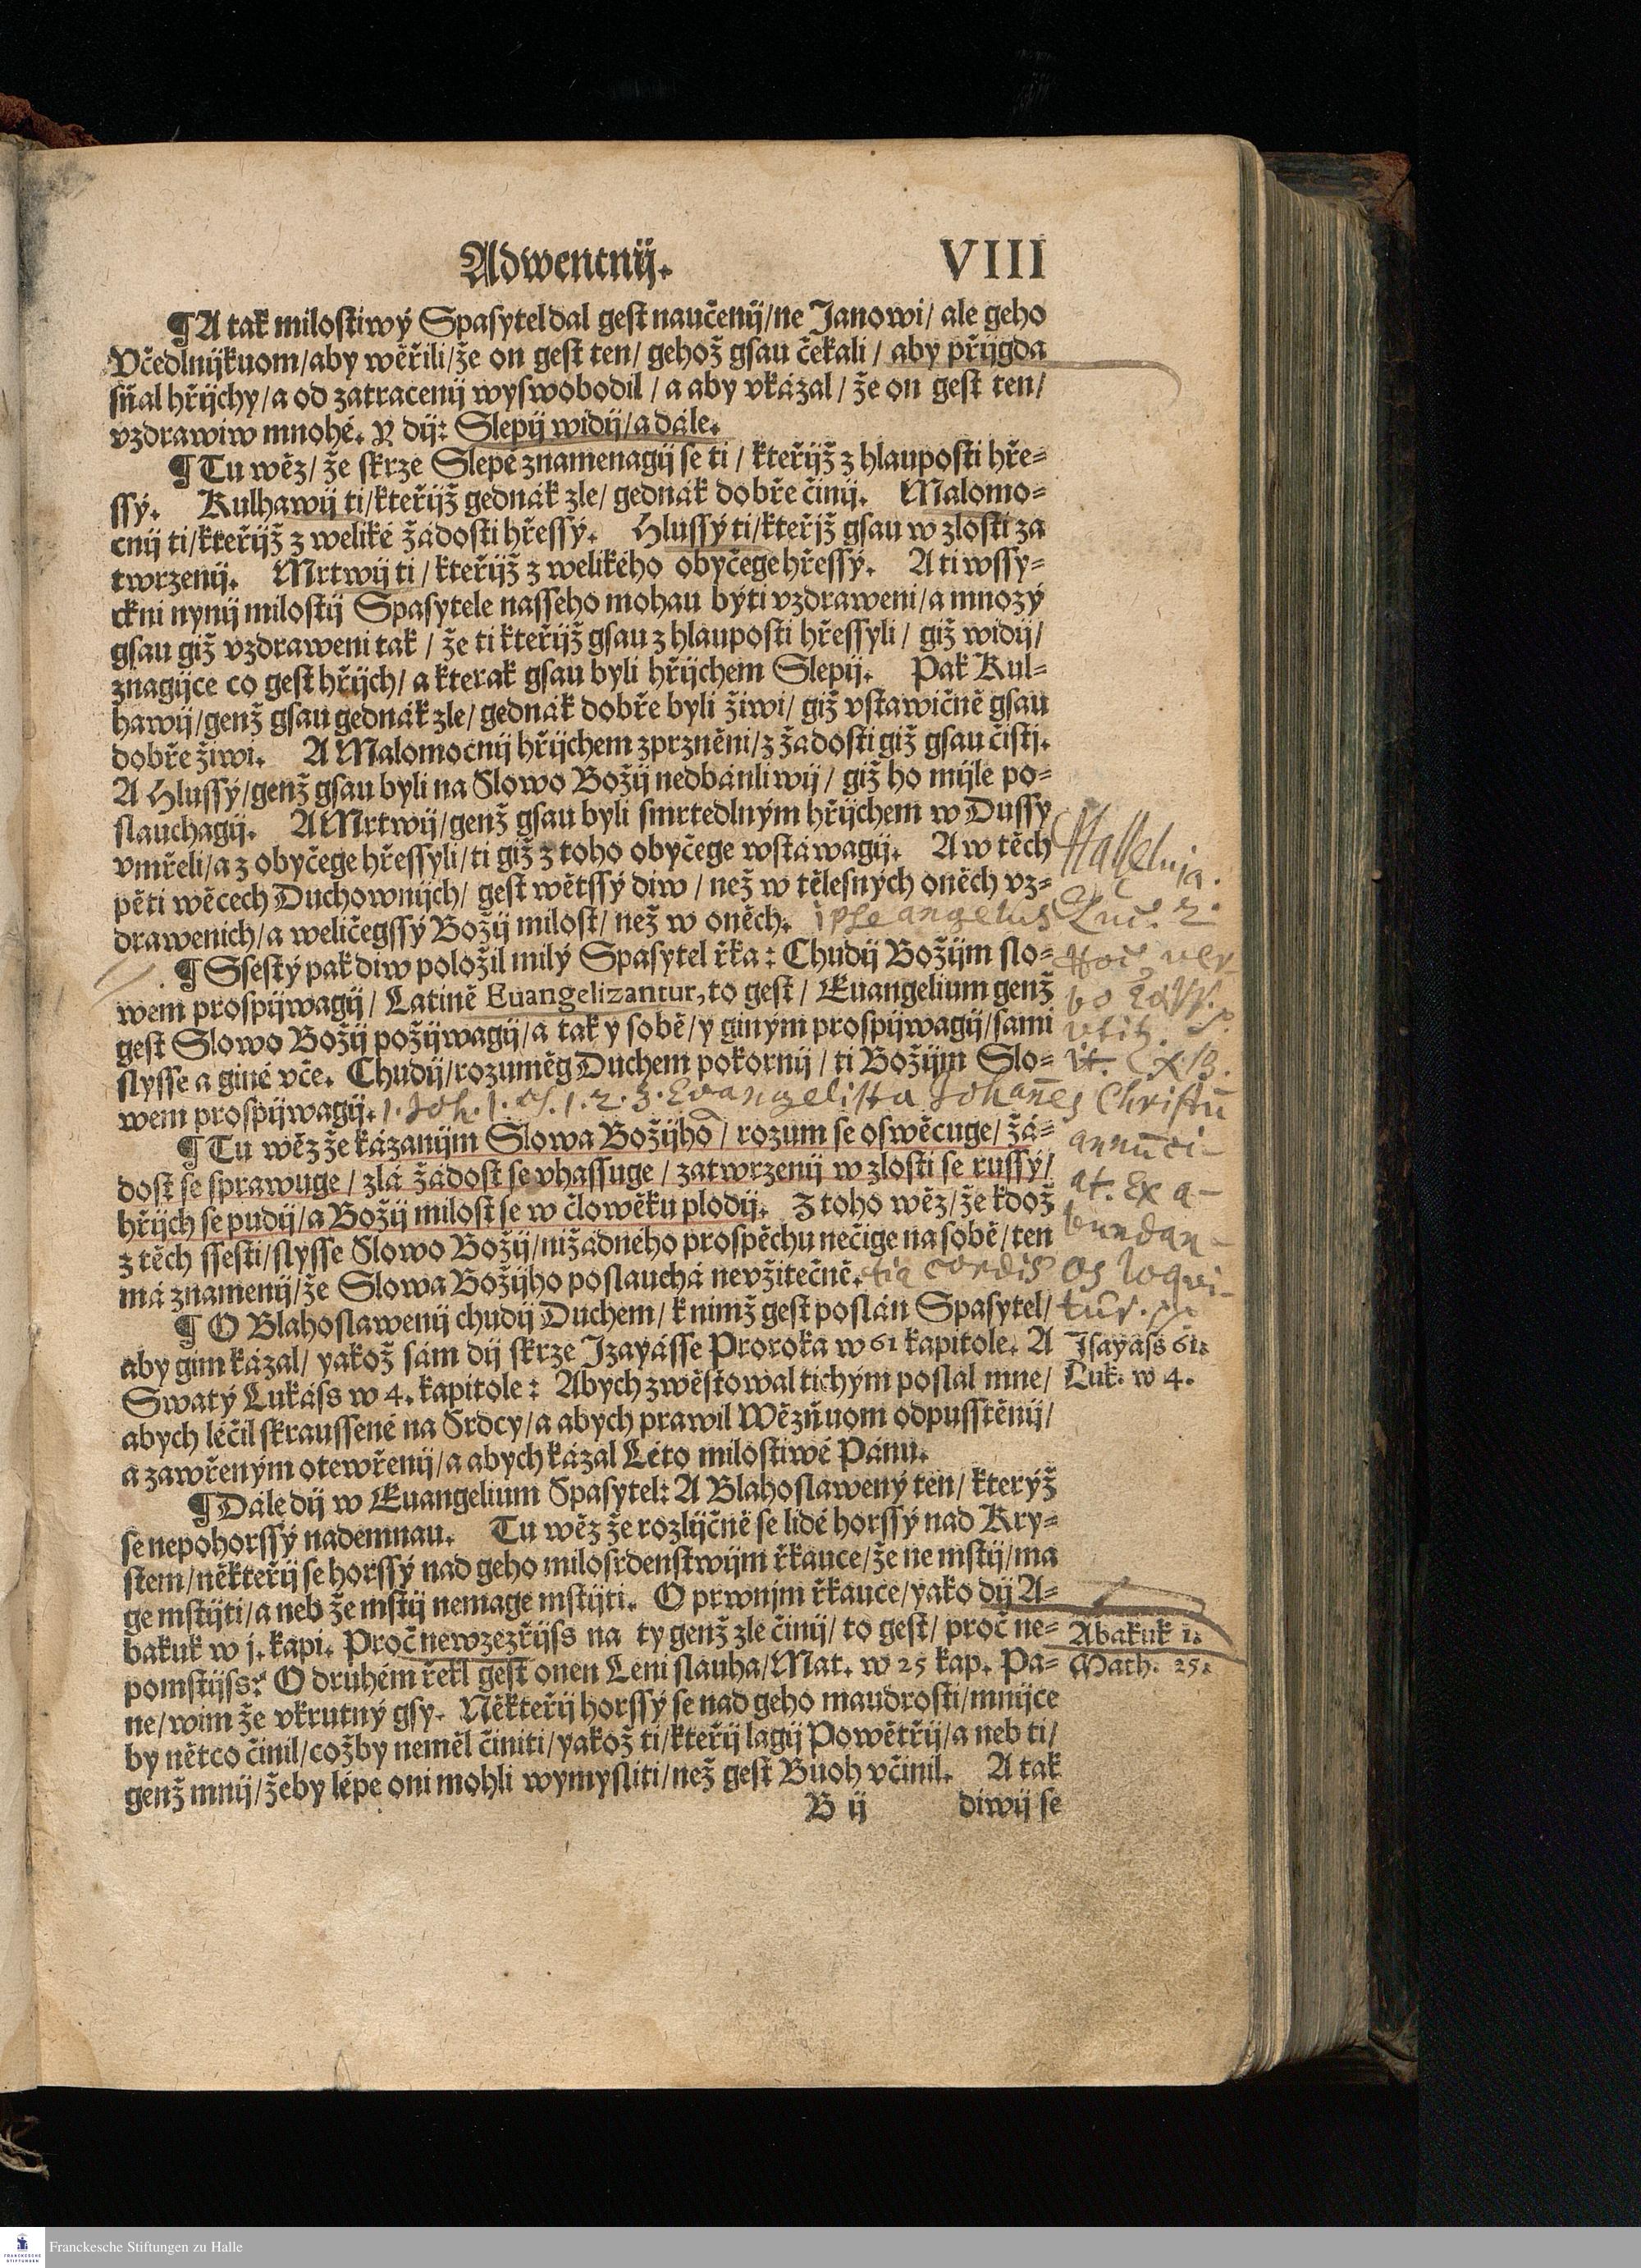 Adwentnij. VIII
¶ A tak milostiwý Spasytel dal gest naučenij/ ne Janowi/ ale geho
Včedlnijkuom/ aby wěřili/ že on gest ten/ gehož gsau čekali / aby přijgda
sňal hřijchy/ a od zatracenij wyswobodil / a aby vkázal / že on gest ten/
vzdrawiw mnohé. Y dij: Slepij widij/ a dále.
¶ Tu wěz/ že skrze Slepé znamenagij se ti / kteřijž z hlauposti hře=
ssý. Kulhawij ti/ kteřijž gednák zle/ gednák dobře činij. Malomo=
cnij ti/ kteřijž z weliké žádosti hřessý. Hlussý ti/ kteřjž gsau w zlosti za
twrzenij. Mrtwij ti / kteřijž z welikého obyčege hřessý. A ti wssy=
ckni nynij milostij Spasytele nasseho mohau býti vzdraweni/ a mnozý
gsau giž vzdraweni tak / že ti kteřijž gsau z hlauposti hřessyli / giž widij/
znagijce co gest hřijch/ a kterak gsau byli hřijchem Slepij. Pak Kul=
hawij/ genž gsau gednák zle/ gednák dobře byli žiwi/ giž vstawičně gsau
dobře žiwi. A Malomocnij hřijchem zprzněni/ z žádosti giž gsau čisti.
A Hlussý/ genž gsau byli na Slowo Božij nedbánliwij / giž ho mijle po=
slauchagij. A Mrtwij/ genž gsau byli smrtedlným hřijchem w Dussy
vmřeli/ a z obyčege hřessyli/ ti giž z toho obyčege wstáwagij. A w těch
pěti wěcech Duchownijch/ gest wětssý diw / než w tělesných oněch vz=
drawenich/ a weličegssý Božij milost/ než w oněch. ipse angelus
Halleluja.
Luc. 2.
¶ Ssestý pak diw položil milý Spasytel řka: Chudij Božijm slo=
wem prospijwagij/ Latině Euangelizantur, to gest/ Euangelium genž
gest Slowo Božij požijwagij/ a tak y sobě/ y giným prospijwagij/ sami
slysse a giné vče. Chudij/ rozuměg Duchem pokornij / ti Božijm Slo=
wem prospijwagij. 1. Joh. 1. 1. 2. 3. Evangelista Johañes Christũ
annũci-
at. Ex a-
bundan-
tia cordis os loqui-
tur.
¶ Tu wěz že kázanijm Slowa Božijho / rozum se oswěcuge/ žá=
dost se sprawuge / zlá žádost se vhassuge / zatwrzenij w zlosti se russý/
hřijch se pudij/ a Božij milost se w člowěku plodij. Z toho wěz/ že kdož
z těch ssesti/ slysse Slowo Božij/ nižádného prospěchu nečige na sobě/ ten
má znamenij/ že Slowa Božijho poslauchá nevžitečně.
¶ O Blahoslawenij chudij Duchem/ k nimž gest poslán Spasytel/
aby gim kázal/ yakož sám dij skrze Izayásse Proroka w 61 kapitole. A
Swatý Lukáss w 4. kapitole: Abych zwěstowal tichým poslal mne/
abych léčil skraussené na Srdcy/ a abych prawil Wězňuom odpusstěnij/
a zawřeným otewřenij/ a abych kázal Léto milostiwé Pánu.
Isayáss 61.
Luk. w 4.
¶ Dále dij w Euangelium Spasytel: A Blahoslawený ten/ kterýž
se nepohorssý nademnau. Tu wěz že rozlijčně se lidé horssý nad Kry=
stem/ někteřij se horssý nad geho milosrdenstwijm řkauce/ že ne mstij/ ma
ge mstijti/ a neb že mstij nemage mstijti. O prwnjm řkauce/ yako dij A=
bakuk w j. kapi. Proč newzezřijss na ty genž zle činij/ to gest/ proč ne=
pomstijss: O druhém řekl gest onen Leni slauha/ Mat. w 25 kap. Pa=
ne/ wim že vkrutný gsy. Někteřij horssý se nad geho maudrosti/ mnijce
by nětco činil/ cožby neměl činiti/ yakož ti/ kteřij lagij Powětřij/ a neb ti/
genž mnij/ žeby lépe oni mohli wymysliti/ než gest Buoh včinil. A tak
Abakuk 1.
Math. 25.
B ij diwij se
Franckesche Stiftungen zu Halle